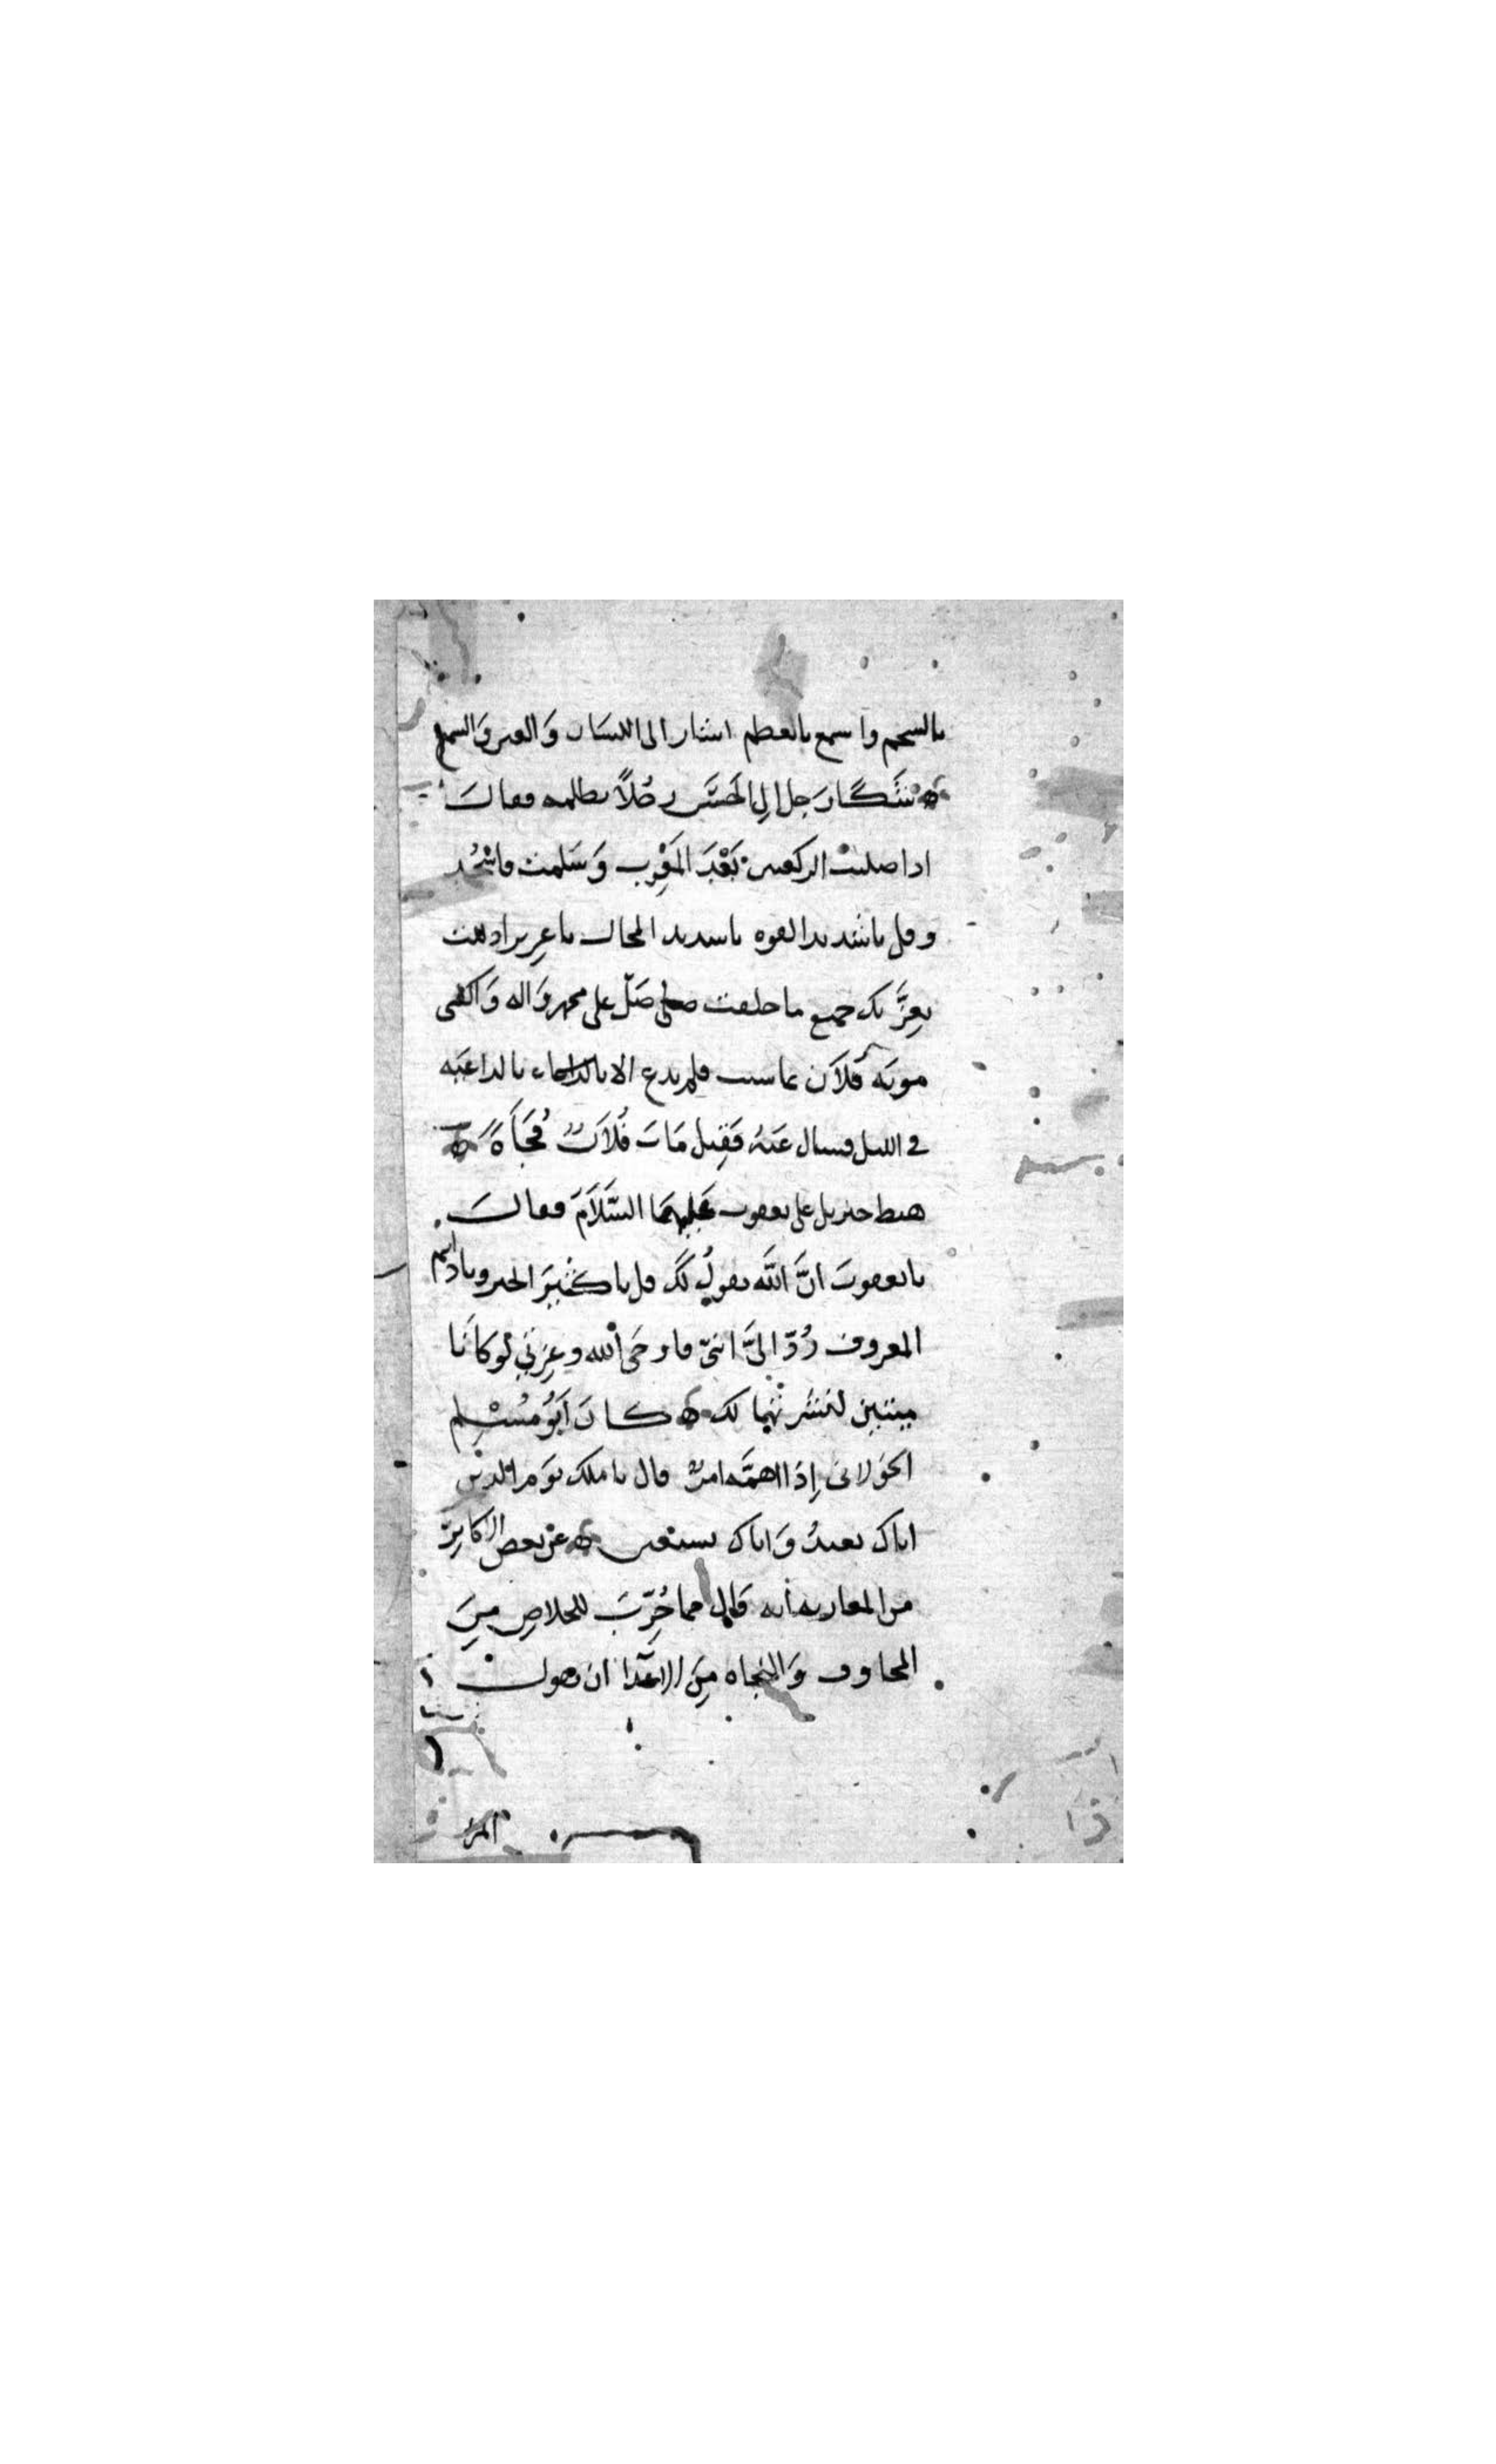 بالشحم واسمع بالعظم اشار الى اللسان والعين والسمع
شكا رجل الى الحسن رجلاً يظلمه فقال
اذا صليت الركعتين بعد المغرب وسلمت فاسجد
وقل يا شديد القوه يا شديد المحال يا عزيز اذللت
بعزتك جميع ما خلقت صل على محمد واله واكفني
مونه فلان بما شئت فلم يرع الا بالداعيه
في الليل فسال عنه فقيل مات فلان فجاة
هبط جبريل على يعقوب عليهما السلام فقال
يا يعقوب ان الله يقول لك قل يا كثير الخير ويا دائم
المعروف رد الي ابني فاوحى الله وعزتي لو كانا
ميتين لنشرتهما لك كان ابو مسلم
الخولاني اذا اهمه امر قال يا ملك يوم الدين
اياك نعبد واياك نستعين عن بعض الاكابر
من المغاربه انه قال مما جرب للخلاص من
المخاوف والنجاه من الاعدا ان تقول